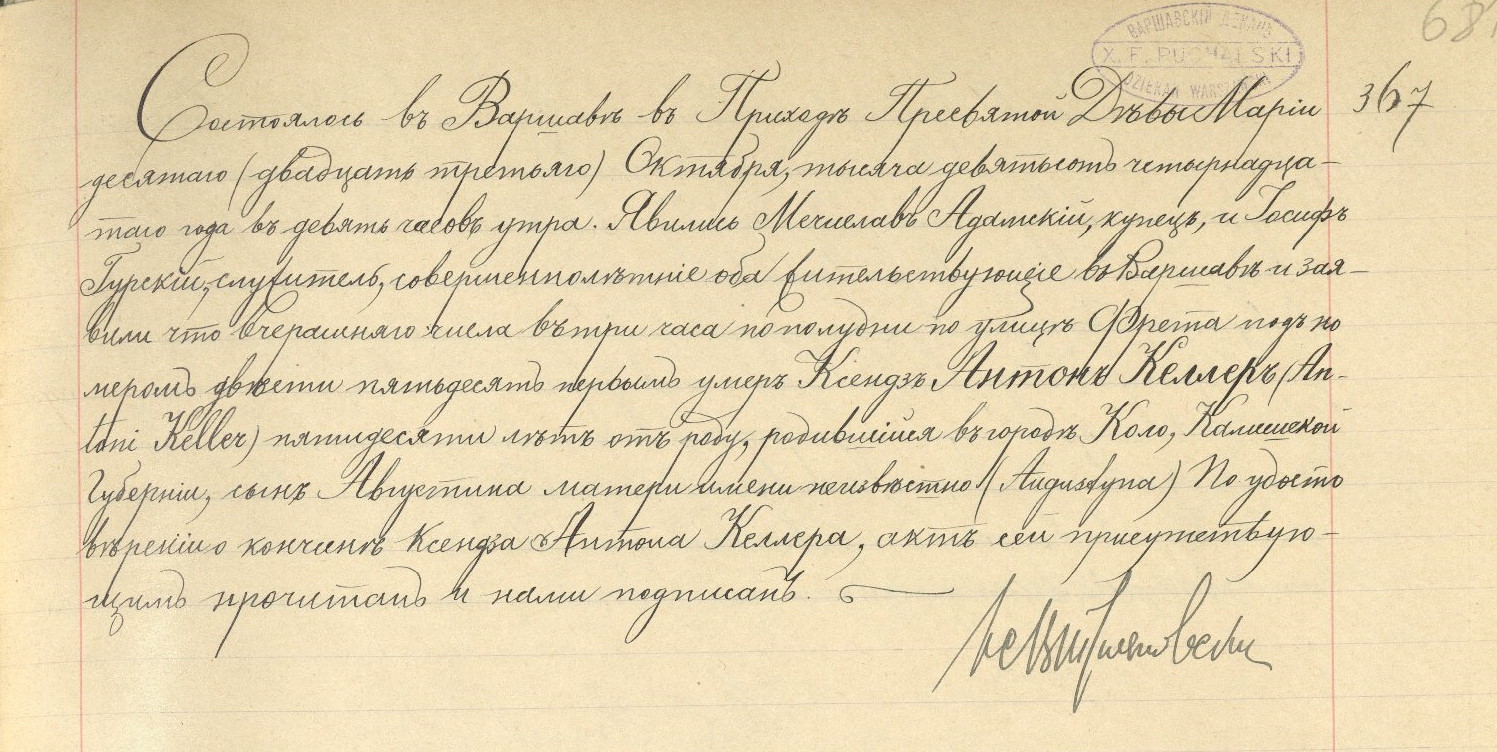 ВАРШАВСКІЙ ДЕКАНЪ
X. F. PUCHALSKI
DZIEKAN WARSZAWSKI
681
367
Состоялось въ Варшавѣ въ Приходѣ Пресвятой Дѣвы Маріи
десятаго (двадцать третьяго) Октября, тысяча девятьсотъ четырнадца-
таго года въ девять часовъ утра. Явились Мечиславъ Адамскій, купецъ, и Іосифъ
Гурскій, служитель, совершеннолѣтніе оба жительствующіе въ Варшавѣ и зая-
вили что вчерашняго числа въ три часа пополудни по улицѣ Фрета подъ но
меромъ двѣсти пятьдесятъ первымъ умеръ Ксендзъ Антонъ Келлеръ (An-
toni Keller) пятидесяти лѣтъ отъ роду, родившійся въ городѣ Коло, Калишской
Губерніи, сынъ Августина матери имени неизвѣстно (Augustyna) По удосто
вѣреніи о кончинѣ Ксендза Антона Келлера, актъ сей присутствую-
щимъ прочитанъ и нами подписанъ.